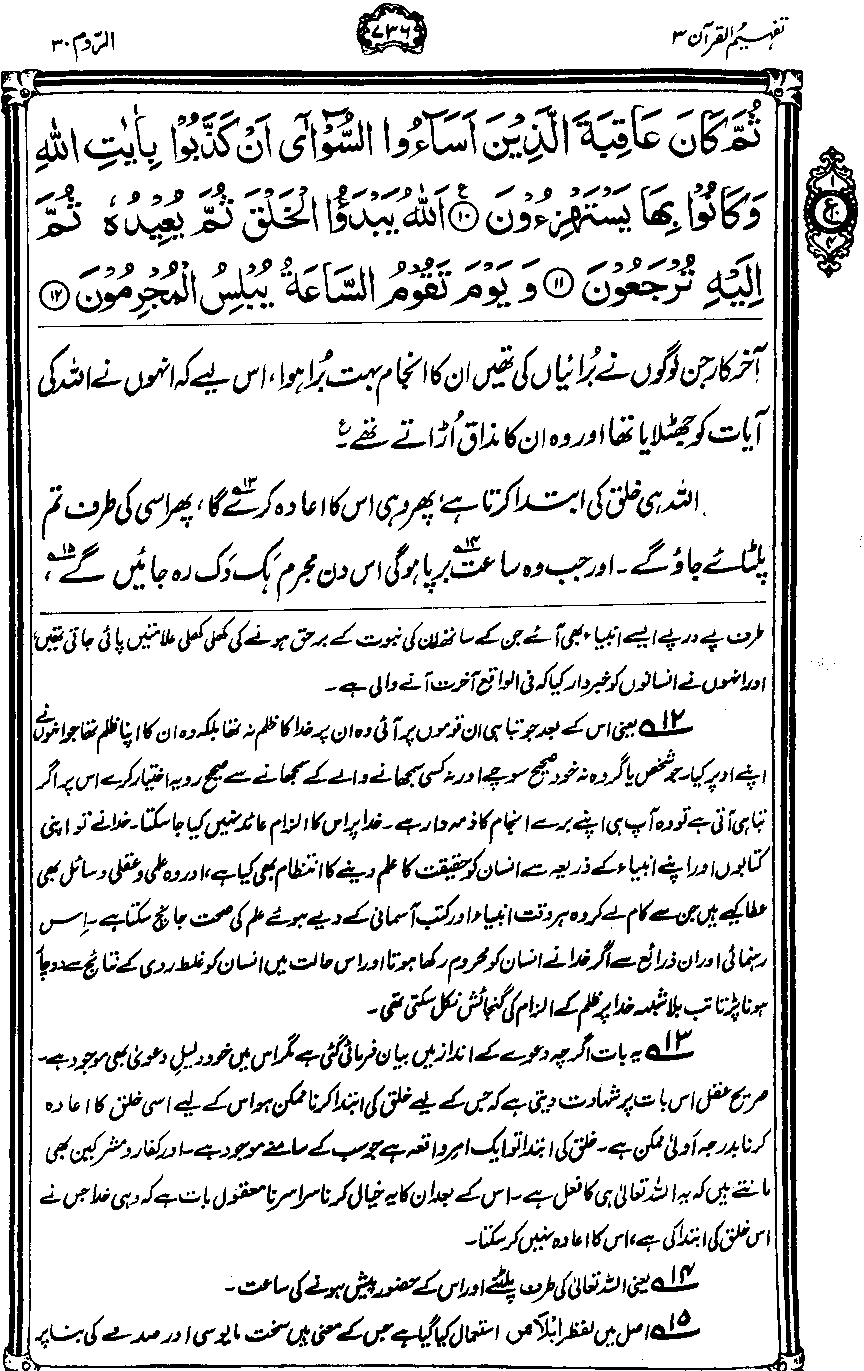 تفہیم القرآن ۳
۷۳۶
الرّوم ۳۰
ثُمَّ كَانَ عَاقِبَةَ الَّذِيْنَ اَسَآءُوا السُّوْٓاٰۤى اَنْ كَذَّبُوْا بِاٰيٰتِ اللّٰهِ
وَكَانُوْا بِهَا يَسْتَهْزِءُوْنَ ⑩ اَللّٰهُ يَبْدَؤُا الْخَلْقَ ثُمَّ يُعِيْدُهٗ ثُمَّ
اِلَيْهِ تُرْجَعُوْنَ ⑪ وَيَوْمَ تَقُوْمُ السَّاعَةُ يُبْلِسُ الْمُجْرِمُوْنَ ⑫
ع
آخر کار جن لوگوں نے بُرائیاں کی تھیں ان کا انجام بہت بُرا ہوا، اس لیے کہ انہوں نے اللہ کی
آیات کو جھٹلایا تھا اور وہ ان کا مذاق اُڑاتے تھے۔ ع
اللہ ہی خلق کی ابتدا کرتا ہے، پھر وہی اس کا اعادہ کرے گا،۱۳ پھر اسی کی طرف تم
پلٹائے جاؤ گے۔ اور جب وہ ساعت۱۴ برپا ہوگی اس دن مجرم ہَک دَک رہ جائیں گے۱۵،
طرف پے درپے ایسے انبیاء بھی آئے جن کے ساتھ ان کی نبوت کے برحق ہونے کی کھلی کھلی علامتیں پائی جاتی تھیں،
اور انہوں نے انسانوں کو خبردار کیا کہ فی الواقع آخرت آنے والی ہے۔
۱۲ یعنی اس کے بعد جو تباہی ان قوموں پر آئی وہ ان پر خدا کا ظلم نہ تھا بلکہ وہ ان کا اپنا ظلم تھا جو انہوں نے
اپنے اوپر کیا۔ جو شخص یا گروہ نہ خود صحیح سوچے اور نہ کسی سمجھانے والے کے سمجھانے سے صحیح رویہ اختیار کرے اس پر اگر
تباہی آتی ہے تو وہ آپ ہی اپنے برے انجام کا ذمہ دار ہے۔ خدا پر اس کا الزام عائد نہیں کیا جا سکتا۔ خدا نے تو اپنی
کتابوں اور اپنے انبیاء کے ذریعہ سے انسان کو حقیقت کا علم دینے کا انتظام بھی کیا ہے، اور وہ علمی و عقلی وسائل بھی
عطا کیے ہیں جن سے کام لے کر وہ ہر وقت انبیاء اور کتب آسمانی کے دیے ہوئے علم کی صحت جانچ سکتا ہے۔ اِس
رہنمائی اور ان ذرائع سے اگر خدا نے انسان کو محروم رکھا ہوتا اور اس حالت میں انسان کو غلط روی کے نتائج سے دوچار
ہونا پڑتا تب بلاشبہ خدا پر ظلم کے الزام کی گنجائش نکل سکتی تھی۔
۱۳ یہ بات اگرچہ دعوے کے انداز میں بیان فرمائی گئی ہے مگر اس میں خود دلیلِ دعویٰ بھی موجود ہے۔
صریح عقل اس بات پر شہادت دیتی ہے کہ جس کے لیے خلق کی ابتدا کرنا ممکن ہو اس کے لیے اسی خلق کا اعادہ
کرنا بدرجہ اَولیٰ ممکن ہے۔ خلق کی ابتدا تو ایک امر واقعہ ہے جو سب کے سامنے موجود ہے۔ اور کفار و مشرکین بھی
مانتے ہیں کہ یہ اللہ تعالیٰ ہی کا فعل ہے۔ اس کے بعد ان کا یہ خیال کرنا سراسر نا معقول بات ہے کہ وہی خدا جس نے
اس خلق کی ابتدا کی ہے، اس کا اعادہ نہیں کر سکتا۔
۱۴ یعنی اللہ تعالیٰ کی طرف پلٹنے اور اس کے حضور پیش ہونے کی ساعت۔
۱۵ اصل میں لفظ اِبْلَاس استعمال کیا گیا ہے جس کے معنی ہیں سخت مایوسی اور صدمے کی بنا پر